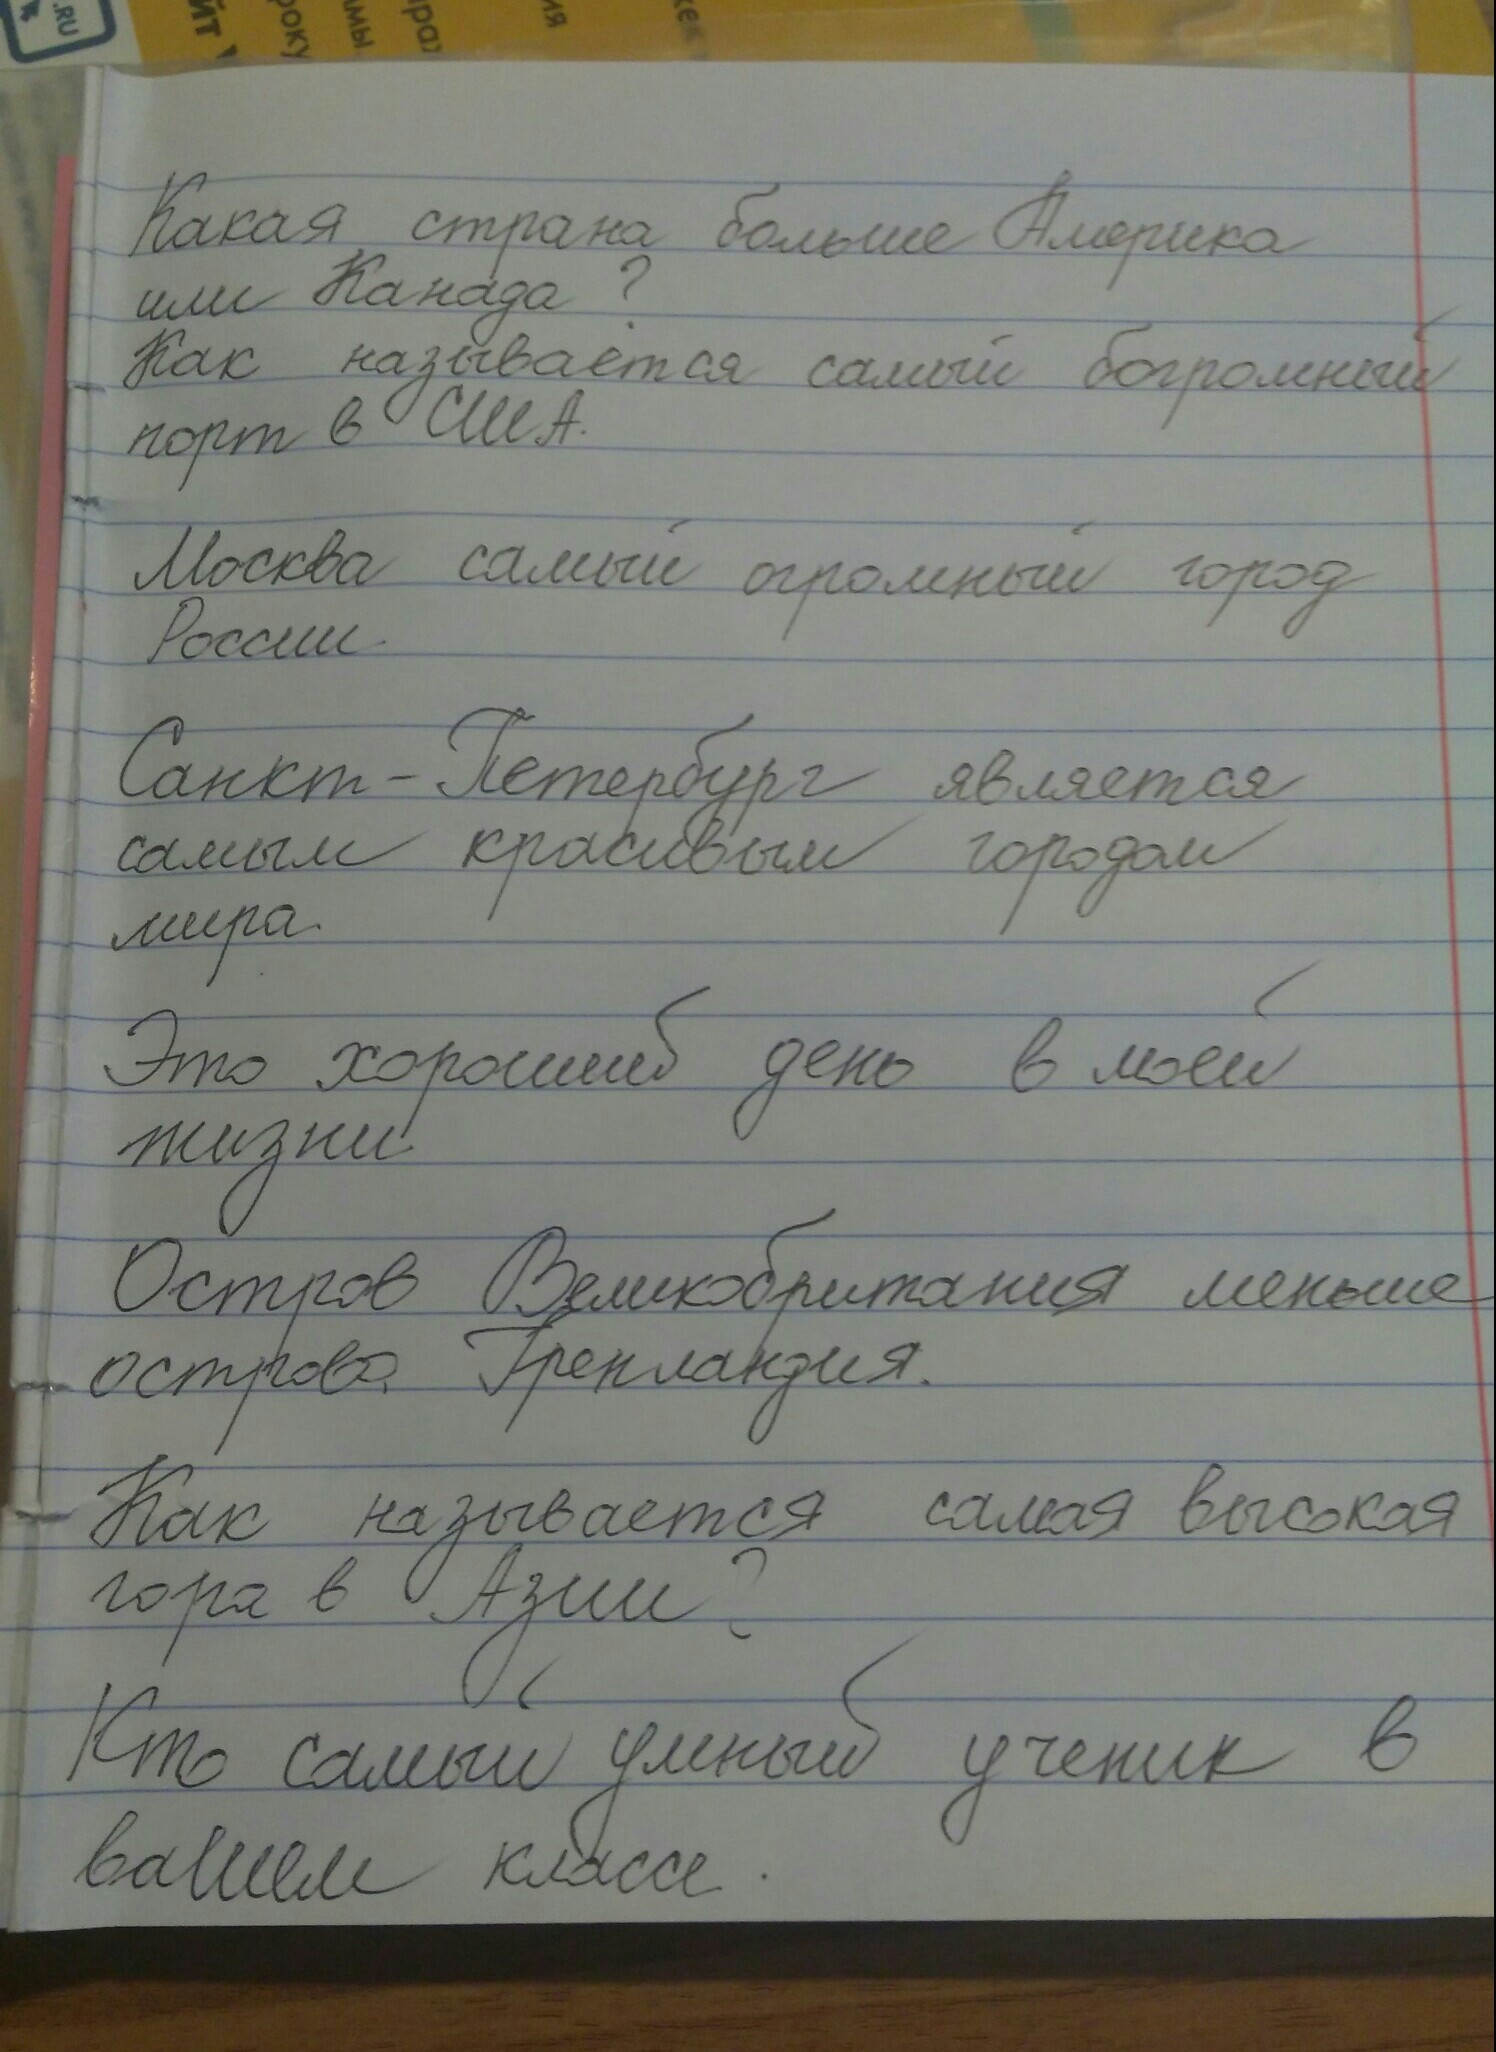 .RU
йт
року
ммы
ия
Какая страна больше Америка
или Канада?
Как называется самый богромный
порт в США.
Москва самый огромный город
России.
Санкт-Петербург является
самым красивым городом
мира.
Это хороший день в моей
жизни.
Остров Великобритания меньше
острова Гренландия.
Как называется самая высокая
гора в Азии?
Кто самый умный ученик в
вашем классе.